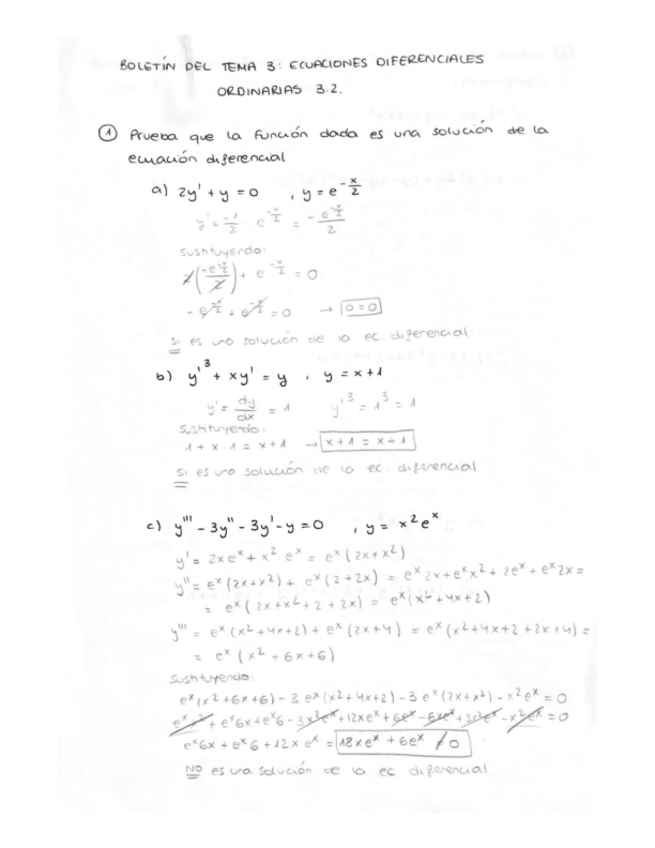 BOLETÍN DEL TEMA 3: ECUACIONES DIFERENCIALES
ORDINARIAS 3.2.
① Prueba que la función dada es una solución de la
ecuación diferencial
a) 2y' + y = 0 , y = e^{-x/2}
y' = -1/2 e^{-x/2} = - e^{-x/2}/2
Sustituyendo:
2(-e^{-x/2}/2) + e^{-x/2} = 0
- e^{-x/2} + e^{-x/2} = 0 → 0 = 0
SI es una solución de la ec. diferencial
b) y'^3 + xy' = y , y = x + 1
y' = dy/dx = 1 y'^3 = 1^3 = 1
Sustituyendo:
1 + x · 1 = x + 1 → x + 1 = x + 1
SI es una solución de la ec. diferencial
c) y''' - 3y'' - 3y' - y = 0 , y = x^2 e^x
y' = 2xe^x + x^2 · e^x = e^x (2x + x^2)
y'' = e^x (2x + x^2) + e^x (2 + 2x) = e^x 2x + e^x x^2 + 2e^x + e^x 2x =
= e^x (2x + x^2 + 2 + 2x) = e^x (x^2 + 4x + 2)
y''' = e^x (x^2 + 4x + 2) + e^x (2x + 4) = e^x (x^2 + 4x + 2 + 2x + 4) =
= e^x (x^2 + 6x + 6)
Sustituyendo:
e^x (x^2 + 6x + 6) - 3 e^x (x^2 + 4x + 2) - 3 e^x (2x + x^2) - x^2 e^x = 0
e^x x^2 + e^x 6x + e^x 6 - 3x^2 e^x + 12xe^x + 6e^x - 6xe^x + 3x^2 e^x - x^2 e^x = 0
e^x 6x + e^x 6 + 12x e^x = 18xe^x + 6e^x ≠ 0
NO es una solución de la ec diferencial